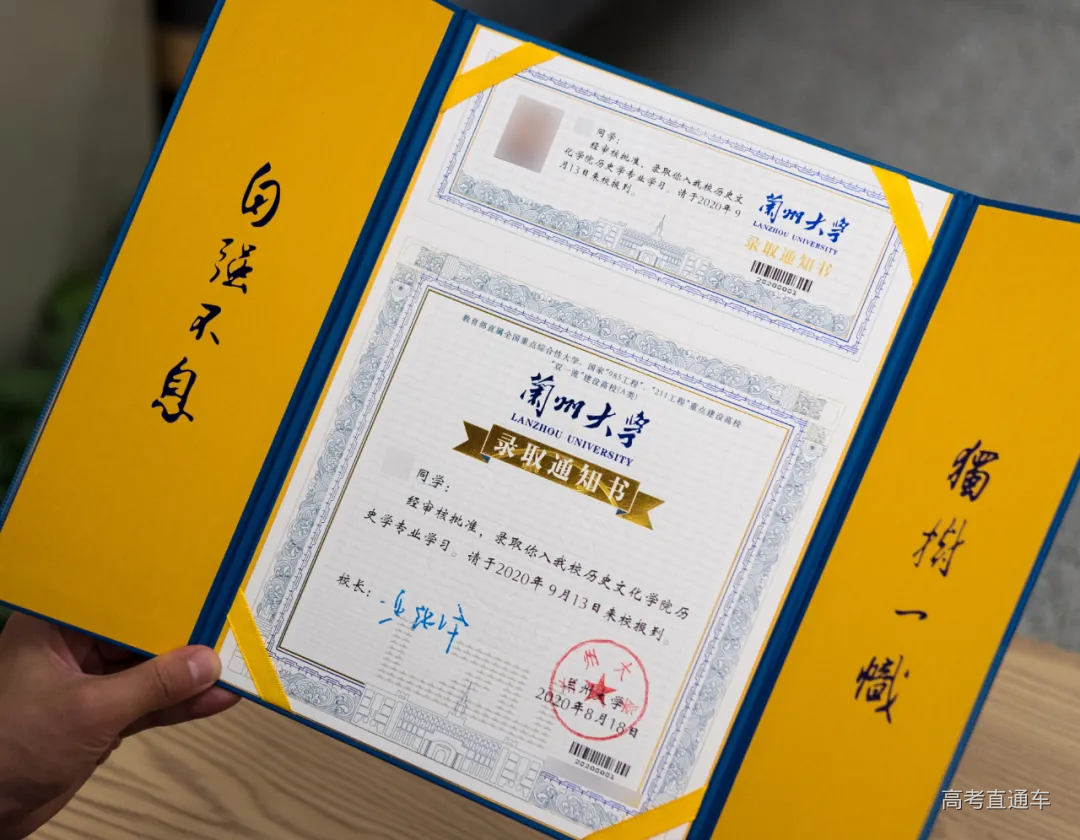 自强不息
同学:
经审核批准,录取你入我校历史文
化学院历史学专业学习。请于2020年9
月13日来校报到。
兰州大学
LANZHOU UNIVERSITY
录取通知书
20200001
教育部直属全国重点综合性大学、国家"985工程"、"211工程"重点建设高校
"双一流"建设高校(A类)
兰州大学
LANZHOU UNIVERSITY
录取通知书
同学:
经审核批准,录取你入我校历史文化学院历
史学专业学习。请于2020年9月13日来校报到。
校长:
兰州大学
2020年8月18日
20200001
獨樹一幟
高考直通车